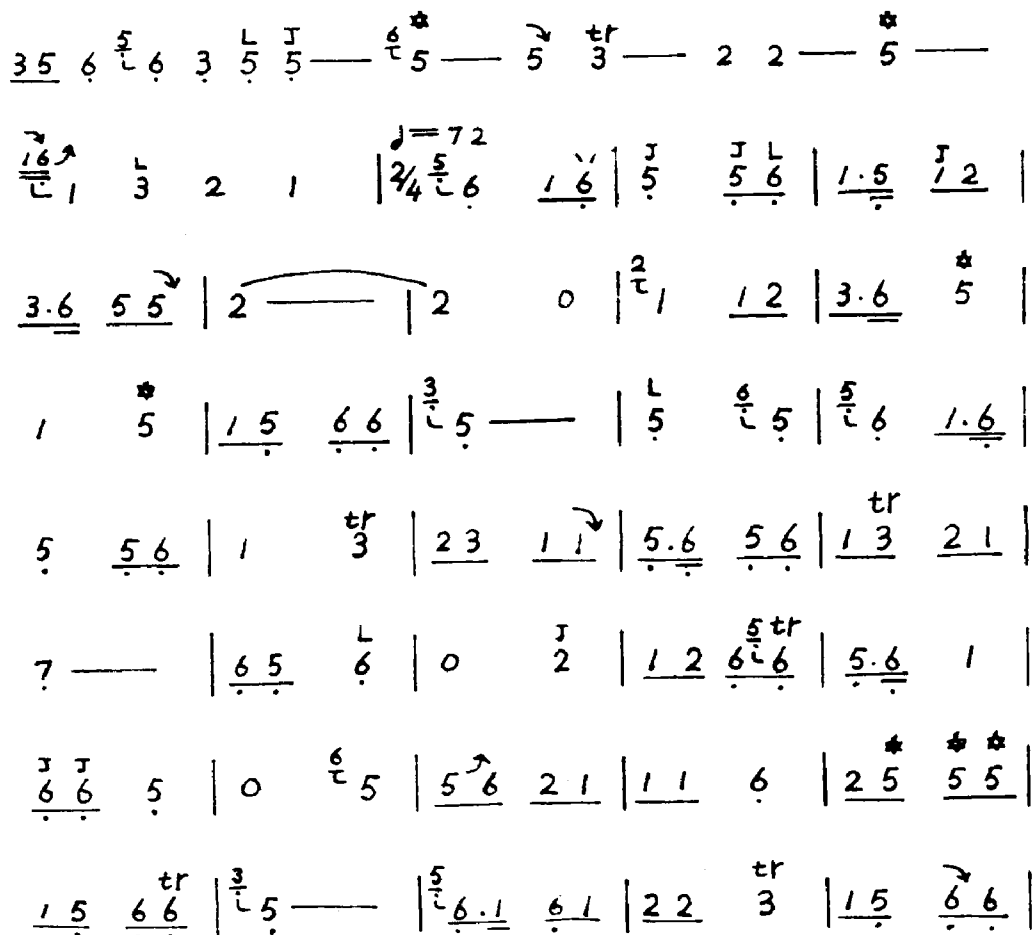 35 6 5 6 3 L5 J5 — 6 5 — 5 tr3 — 2 2 — 5 —
16 1 L3 2 1 | ♩=72 2/4 5 6 1 6 | J5 J5 L6 | 1·5 J1 2 |
3·6 5 5 | 2 — | 2 0 | 2 1 1 2 | 3·6 5 |
1 5 | 1 5 6 6 | 3 5 — | L5 6 5 | 5 6 1·6 |
5 5 6 | 1 tr3 | 2 3 1 1 | 5·6 5 6 | 1 tr3 2 1 |
7 — | 6 5 L6 | 0 J2 | 1 2 6 5 tr6 | 5·6 1 |
J6 J6 5 | 0 6 5 | 5 6 2 1 | 1 1 6 | 2 5 5 5 |
1 5 6 tr6 | 3 5 — | 5 6·1 6 1 | 2 2 tr3 | 1 5 6 6 |